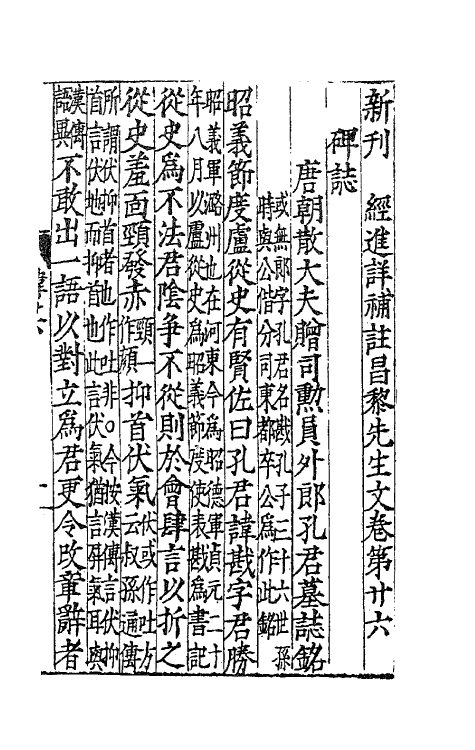 新刊　經進詳補註昌黎先生文卷第廿六
碑誌
唐朝散大夫贈司勳員外郎孔君墓誌銘
或無郎字孔君名戡孔子三十六世孫
時與公偕分司東都卒公爲作此銘
昭義節度盧從史有賢佐曰孔君諱戡字君勝
昭義軍潞州也在河東今爲昭德軍貞元二十
年八月以盧從史爲昭義節度使表戡爲書記
從史爲不法君陰爭不從則於會肆言以折之
從史羞面頸發赤頸一作顔抑首伏氣伏或作吐方云叔孫通傳
所謂伏抑首者也作吐非○今按漢傳言伏抑
首言伏地而抑首也此言伏氣猶言屏氣耳與
漢傳語異不敢出一語以對立爲君更令改章辭者